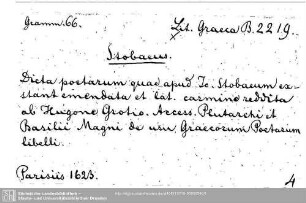 Gramm. 66.
Lit. Graeca B. 2219.
Stobaeus.
Dicta poetarum quae apud Jo. Stobaeum ex-
stant emendata et lat. carmine reddita
ab Hugone Grotio. Access. Plutarchi et
Basilii Magni de usu Graecorum Poetarum
libelli.
Parisiis 1623.
4